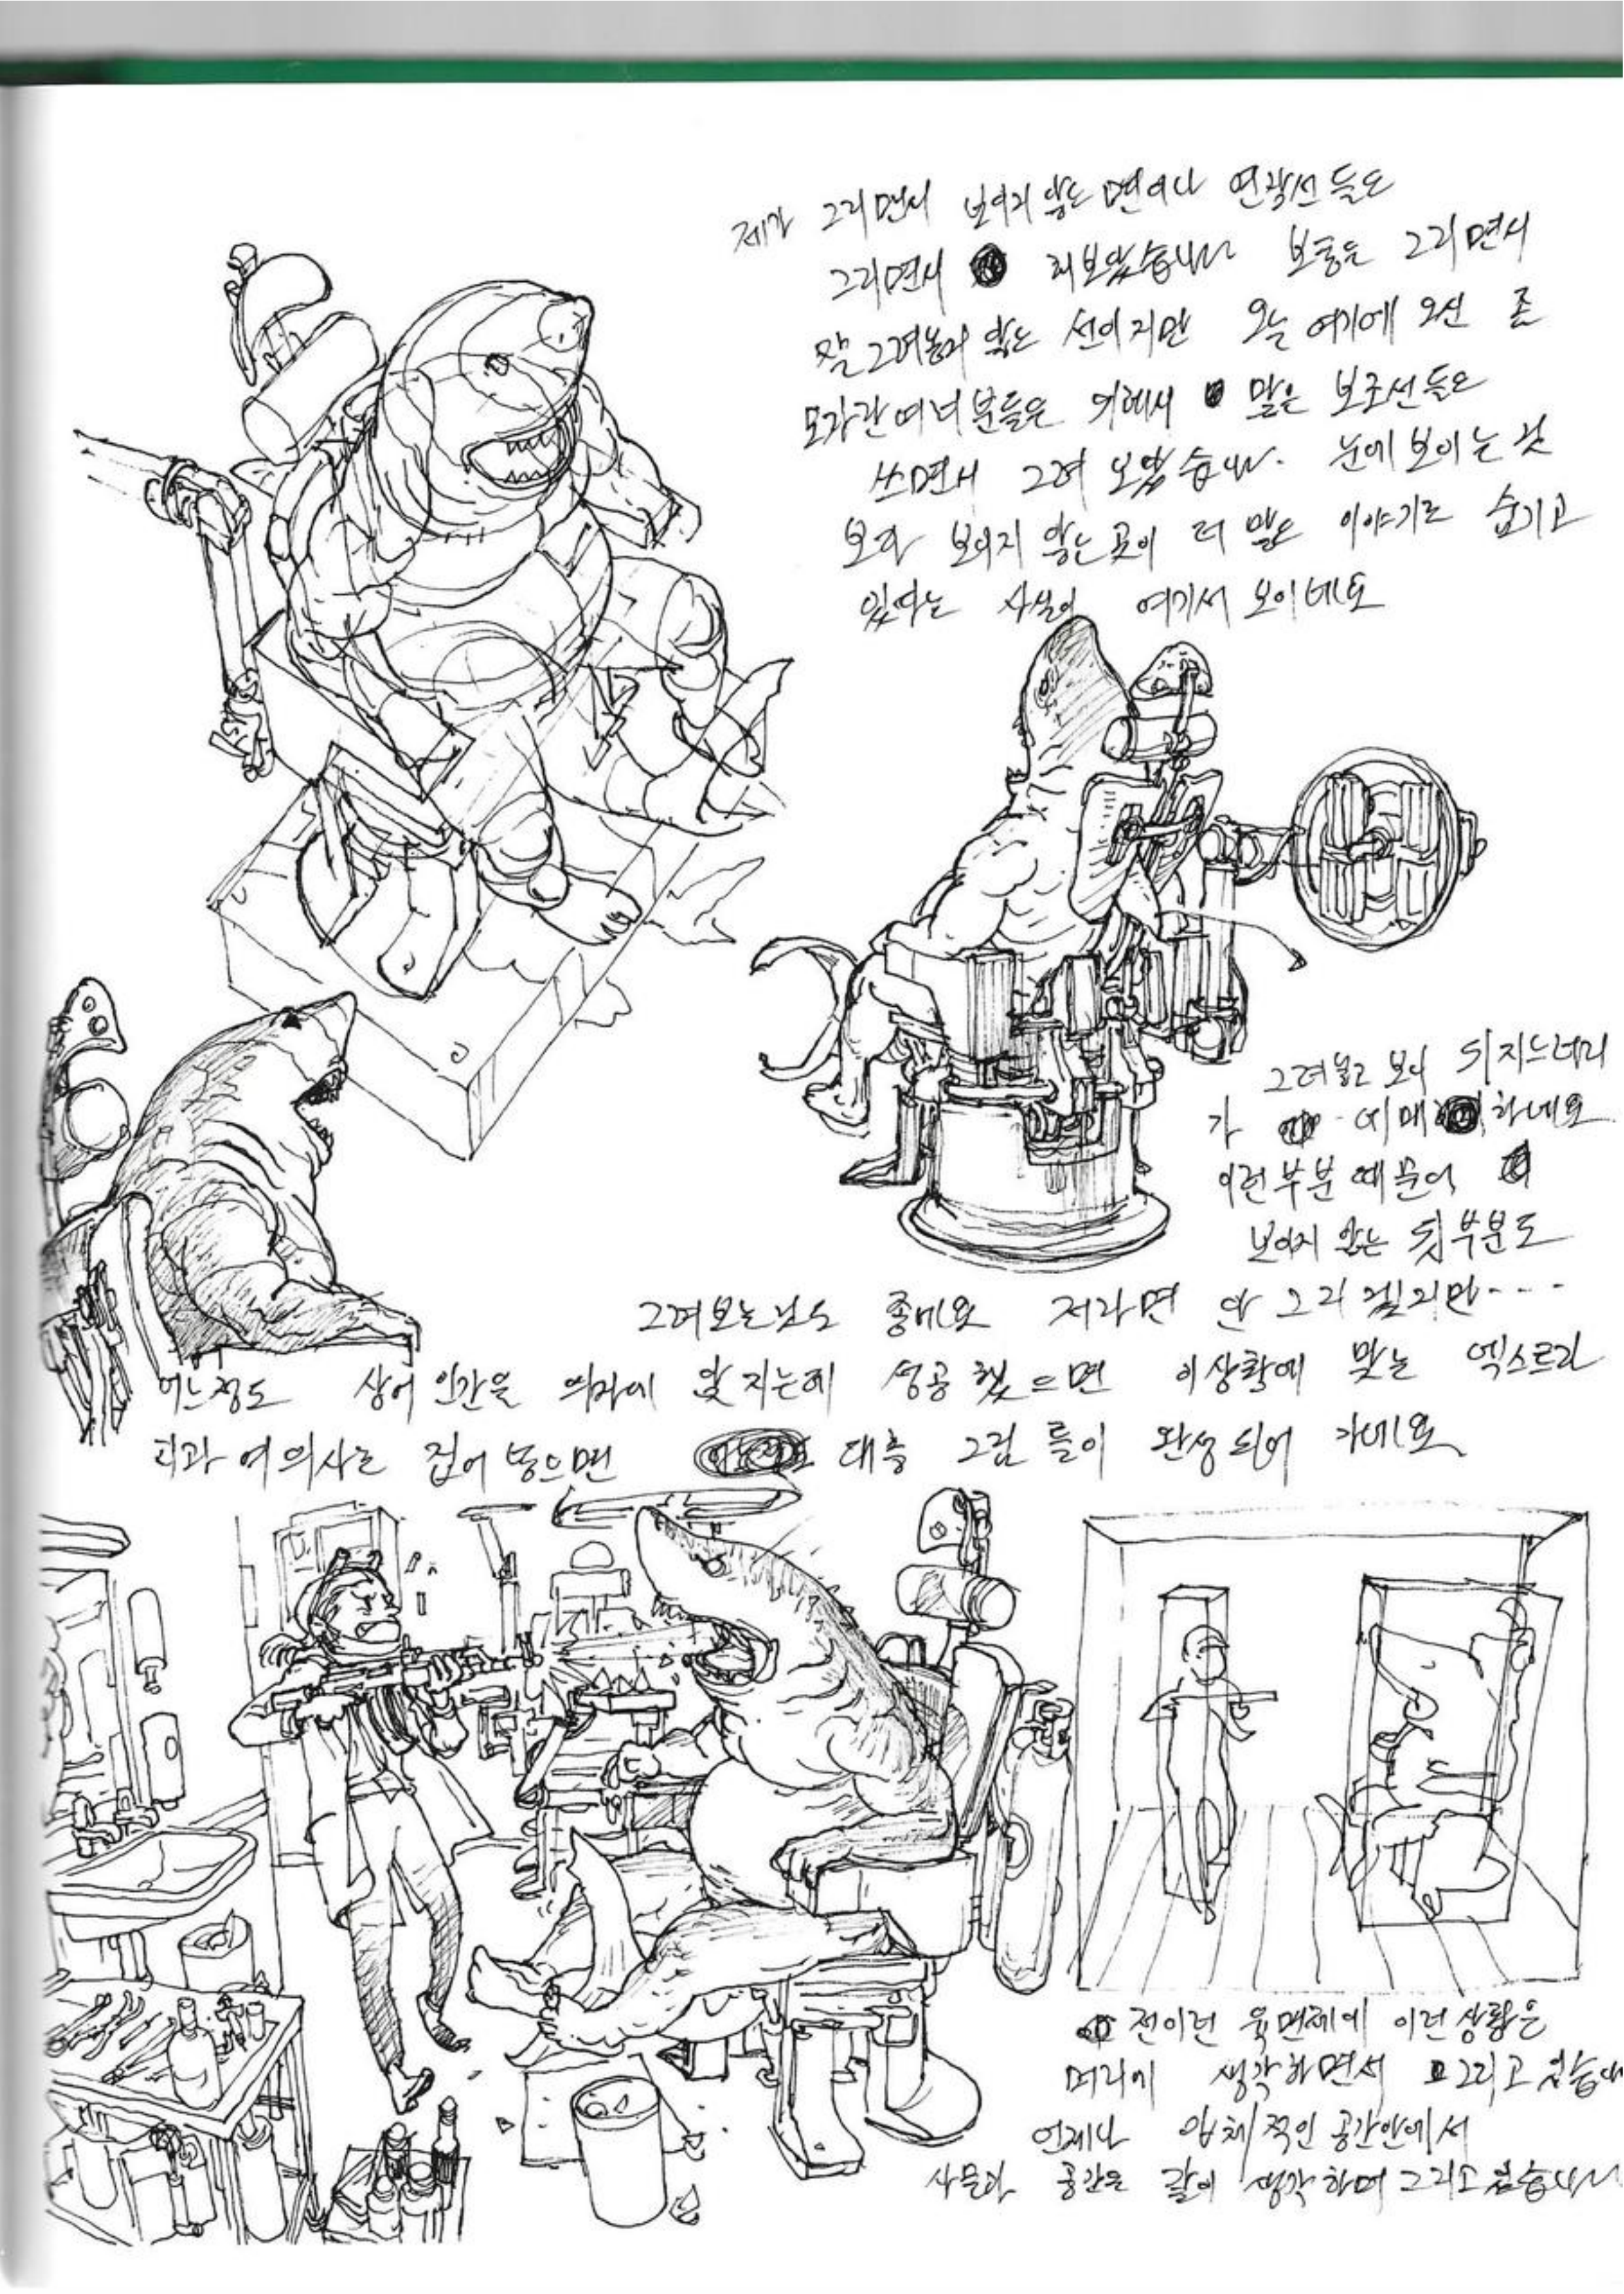 제가 그리면서 보이지 않는 면이나 연장선들도
그리면서 해보았습니다 보통은 그리면서
잘 그려놓지 않는 선이지만 오늘 여기에 오신
분들을 위해서 많은 보조선들도
쓰면서 그려 보았습니다. 눈에 보이는 것
보다 보이지 않는 곳이 더 많은 이야기를 숨기고
있다는 사실이 여기서 보이네요
그려놓고 보니 뒤지느러미
가 하네요
이런 부분 때문에
보이지 않는 뒷부분도
그려보는 것도 좋네요 저라면 안 그리겠지만....
어느정도 상어 인간을 의자에 앉 지는데 성공했으면 이상황에 맞는 엑스트라
치과 여의사를 집어 넣으면 대충 그림 들이 완성 되어 가네요
전 이런 육면체에 이런 상황을
머리에 생각하면서 그리고 있습니
언제나 입체적인 공간안에서
사물과 공간을 같이 생각하며 그리고 있습니다